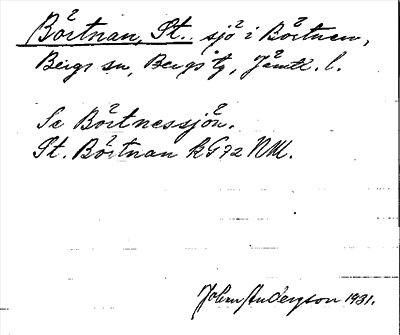 Börtnan, St. sjö i Börtnen,
Bergs sn, Bergs tg, Jämtl. l.
Se Börtnessjön.
St. Börtnan k G72 NM.
John Anderzson 1931.